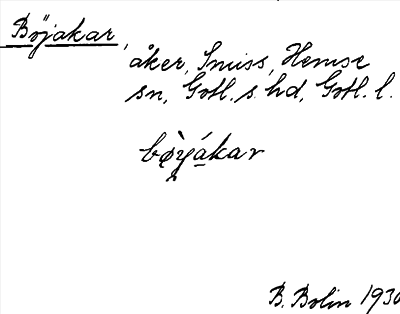 Böjakar,
åker, Smiss, Hemse
sn, Gotl. s. hd, Gotl. l.
bø̀yákar
B. Bolin